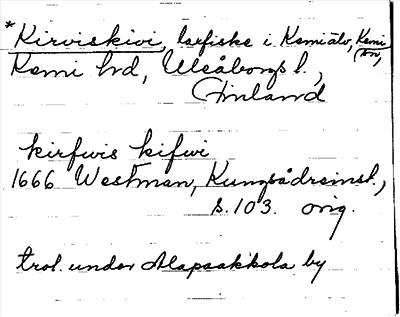 *Kirviskivi, laxfiske i Kemiälv, Kemi
Kemi hrd, Uleåborgs l., (sn)
Finland
kirfwis kifwi
1666 Westman, Kungsådreinst.,
s. 103. orig.
trol. under Alapaakkola by